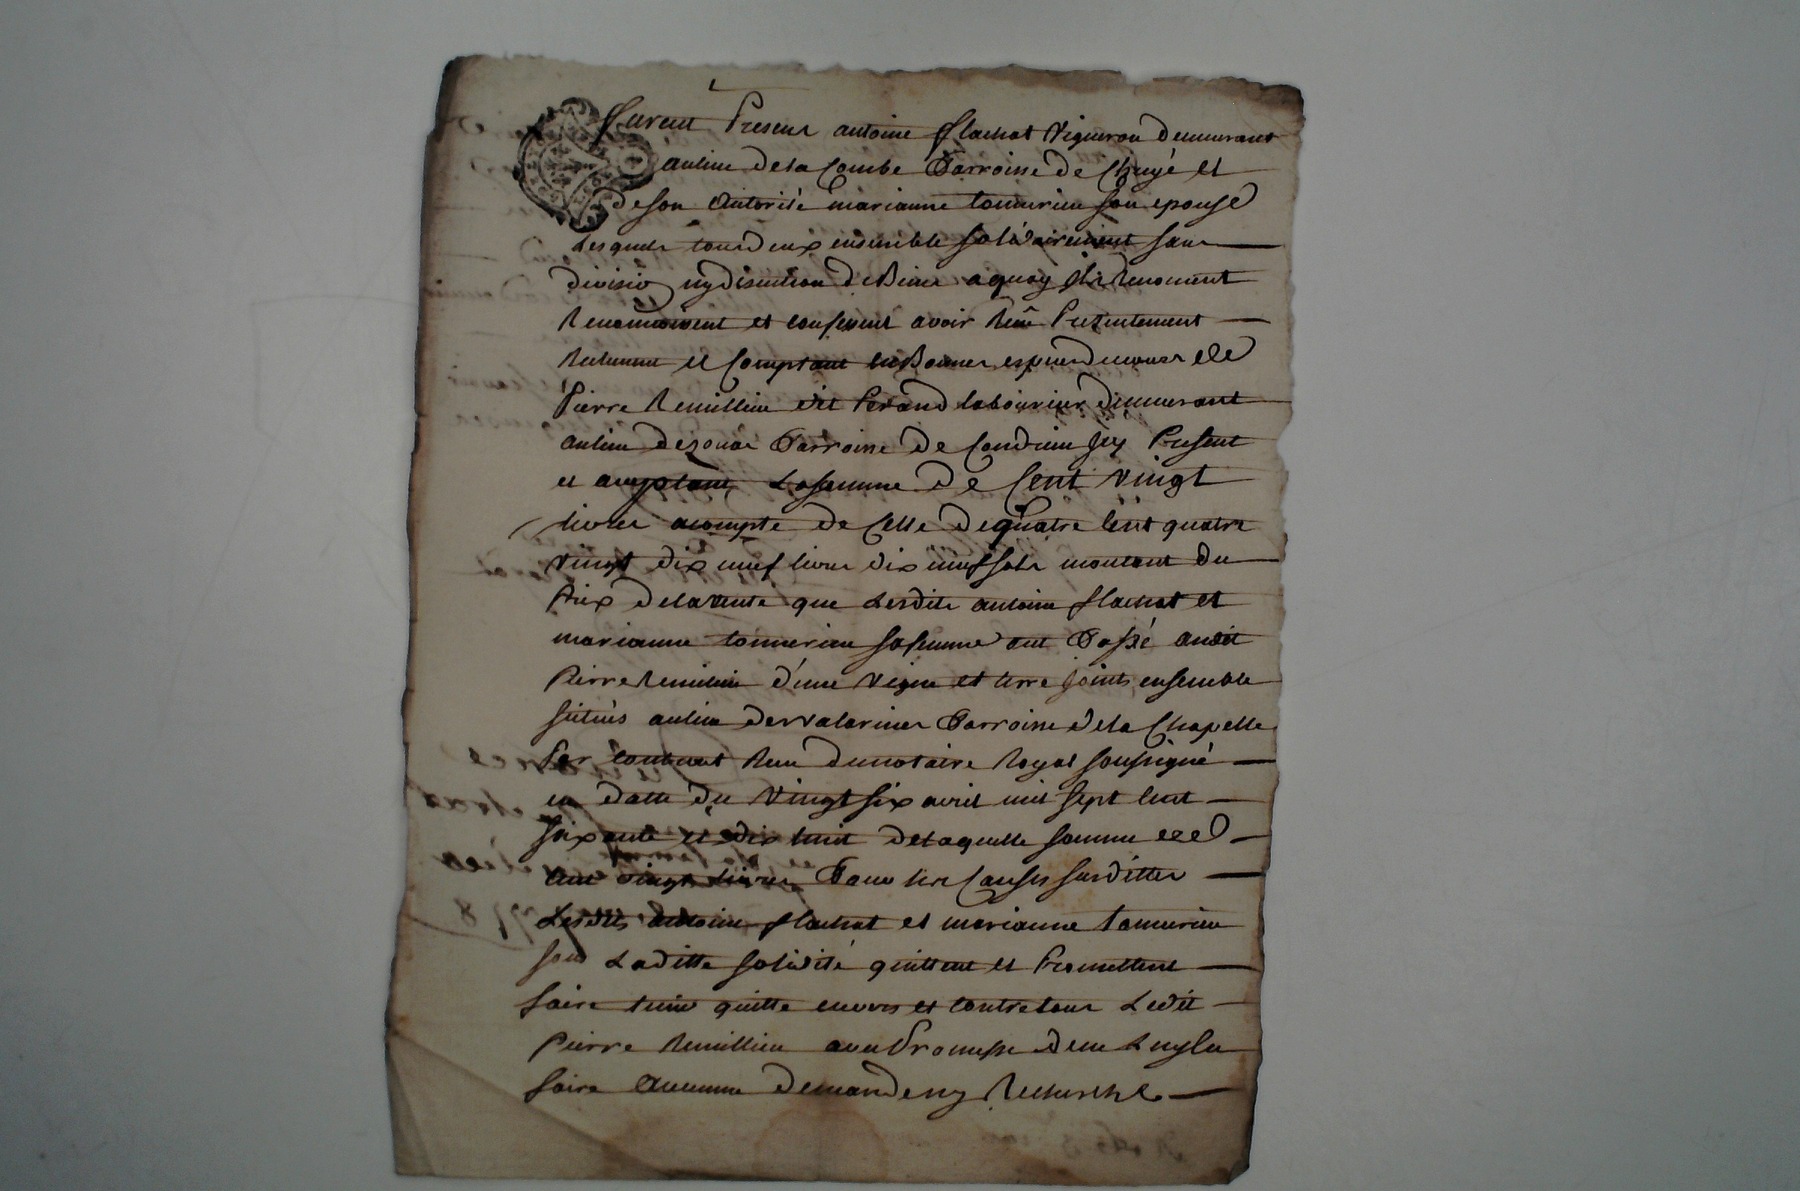 furent Presens antoine flachat Vigneron demeurant
aulieu dela Combe Parroisse de Chuyé et
de son Autorité marianne tonnerieu son epouse
Lesquels tous deux ensemble solidairement sans
division ny discution de Biens aquoy ils Renoncent
Reconnoissent et confessent avoir Reçû Presentement
Reelement et Comptant en Bonnes especes de cours de
Pierre Remillieu dit Perand laboureur demeurant
aulieu de Parroisse de Condrieu Icy Present
et acceptant Lasomme de Cent Vingt
livres acompte de Celle dequatre Cent quatre
vingt dix neuf livres dix neuf sols montant du
Prix delavente que Lesdits antoine flachat et
marianne tonnerieu safemme ont Passé audit
Pierre Remillieu d'une Vigne et terre joints ensemble
situés aulieu Parroisse dela Chapelle
Par contract Reçu du notaire Royal soussigné
en datte du Vingt six avril mil sept Cent
soixante et dix huit delaquelle somme de
Cent vingt Livres Pour les Causes susdittes
Lesdits antoine flachat et marianne tonnerieu
sous Laditte solidité quittent et Promettent
faire tenir quitte envers et contre tous Ledit
Pierre Remillieu avec Promesse de ne Luy en
faire Aucunne demande ny Recherche